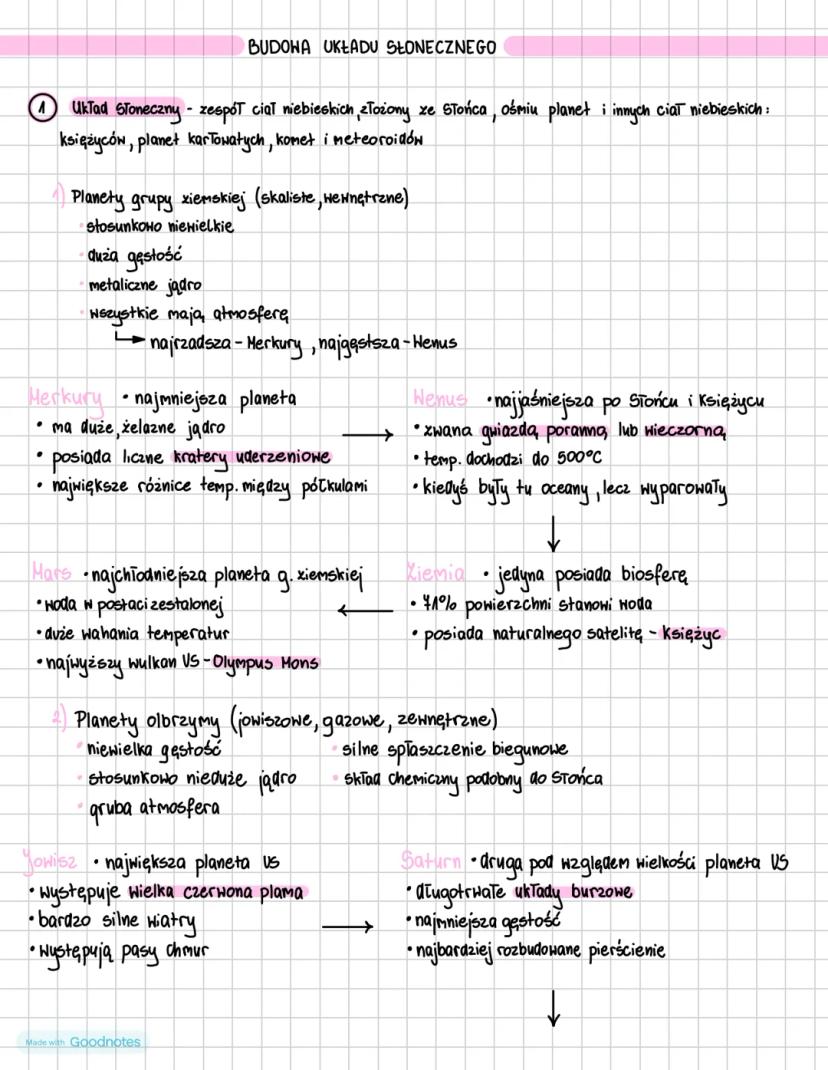 BUDOWA UKŁADU SŁONECZNEGO
1 Układ Słoneczny - zespół ciał niebieskich, złożony ze Słońca, ośmiu planet i innych ciał niebieskich:
księżyców, planet karłowatych, komet i meteoroidów
1) Planety grupy ziemskiej (skaliste, wewnętrzne)
• stosunkowo niewielkie
• duża gęstość
• metaliczne jądro
• wszystkie mają atmosferę
↳ najrzadsza - Merkury, najgęstsza - Wenus
Merkury • najmniejsza planeta
• ma duże, żelazne jądro →
• posiada liczne kratery uderzeniowe
• największe różnice temp. między półkulami
Wenus • najjaśniejsza po Słońcu i Księżycu
• zwana gwiazdą poranną lub wieczorną
• temp. dochodzi do 500°C
• kiedyś były tu oceany, lecz wyparowały
↓
Ziemia • jedyna posiada biosferę
• 71% powierzchni stanowi woda
• posiada naturalnego satelitę - Księżyc
←
Mars • najchłodniejsza planeta g. ziemskiej
• woda w postaci zestalonej
• duże wahania temperatur
• najwyższy wulkan US - Olympus Mons
2) Planety olbrzymy (jowiszowe, gazowe, zewnętrzne)
• niewielka gęstość
• stosunkowo nieduże jądro
• gruba atmosfera
• silne spłaszczenie biegunowe
• skład chemiczny podobny do Słońca
Jowisz • największa planeta US
• występuje wielka czerwona plama
• bardzo silne wiatry →
• występują pasy chmur
Saturn • druga pod względem wielkości planeta US
• długotrwałe układy burzowe
• najmniejsza gęstość
• najbardziej rozbudowane pierścienie
↓
Made with Goodnotes